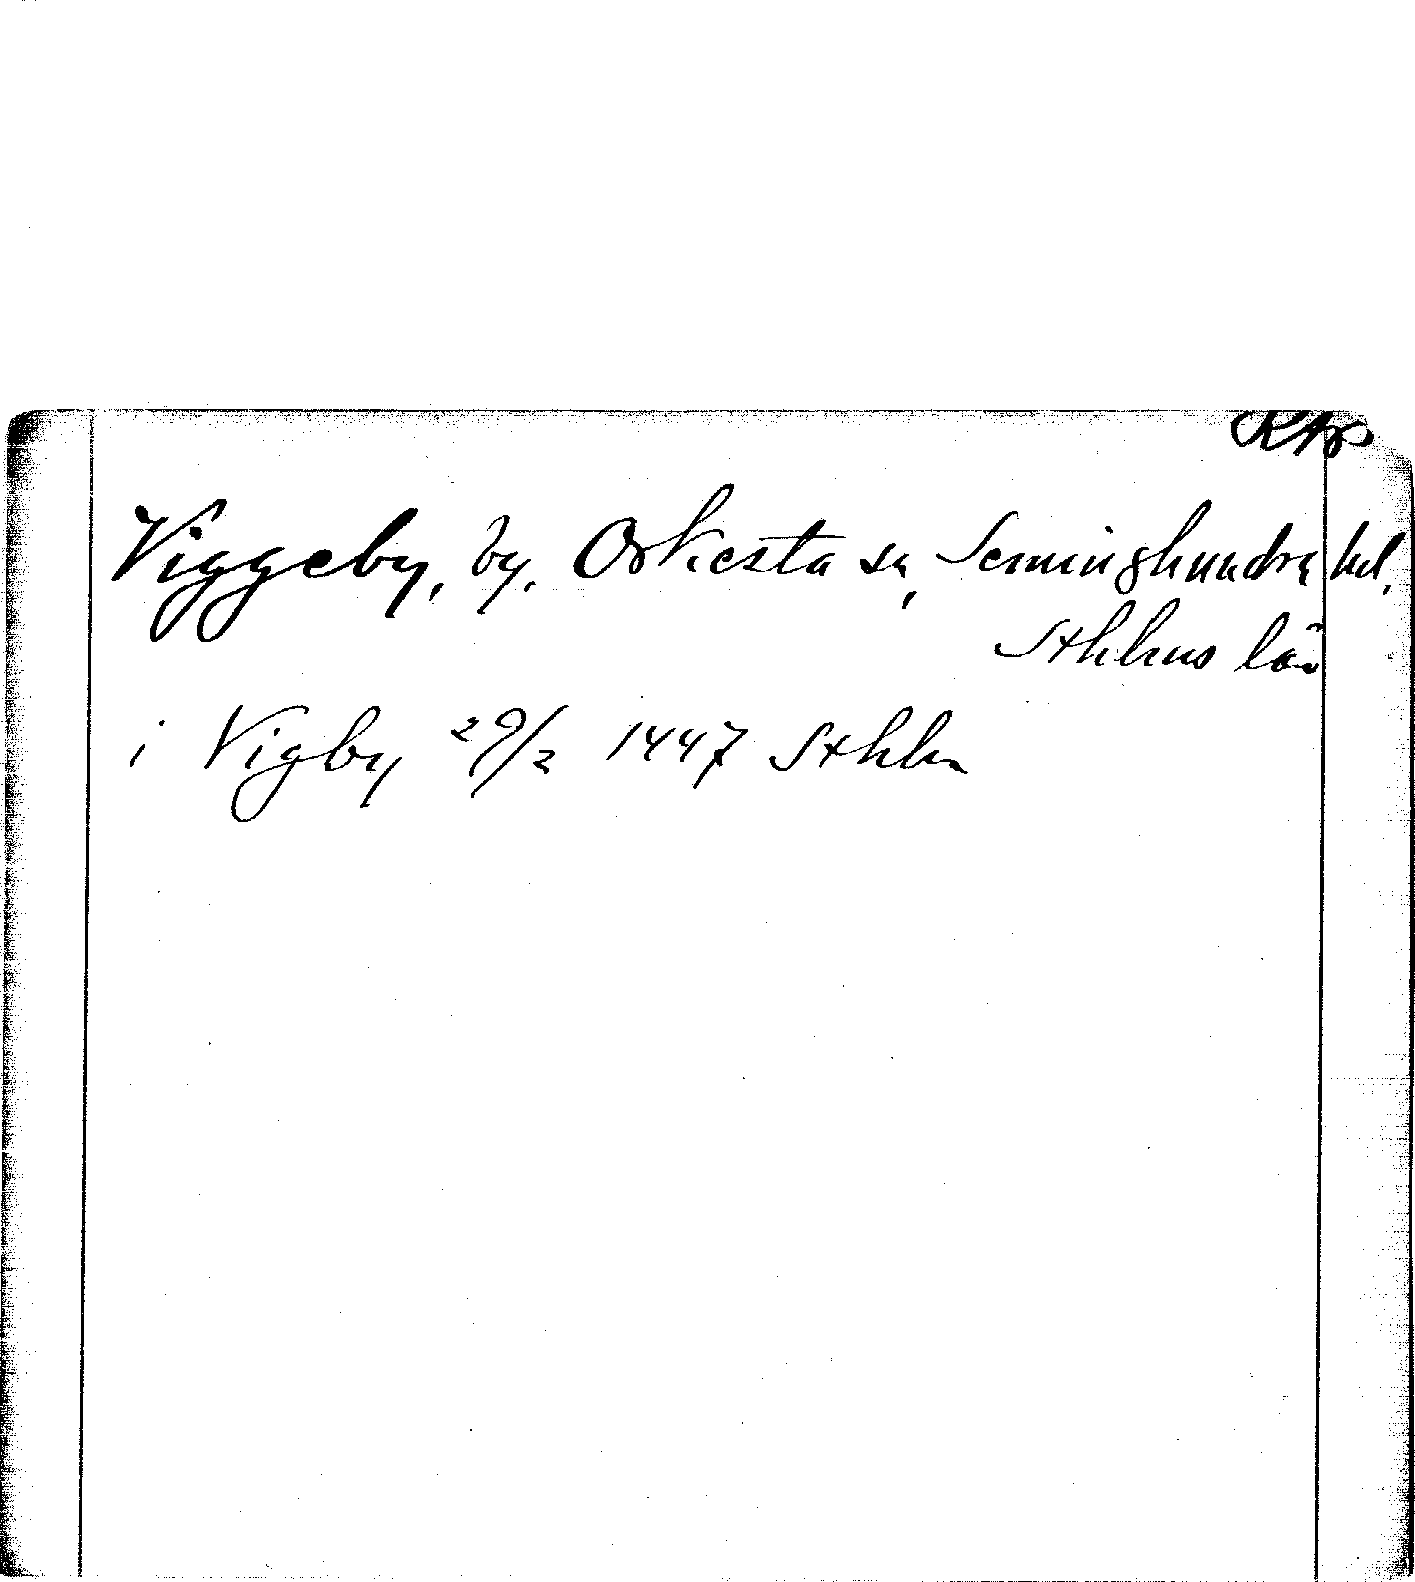 RAp
Viggeby, by, Orkesta sn, Seminghundra hd,
Sthlms län
i Vigby 29/2 1447 Sthlm